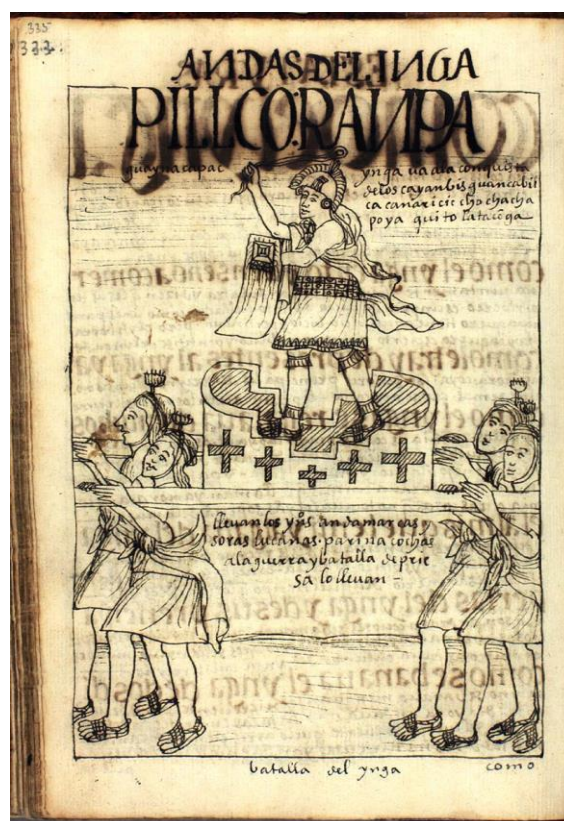 335
333
ANDAS DEL INGA
PILLCORANPA
guayna capac
ynga ua a la conquista
de los cayanbis guancabil
ca canari cicho chacha
poya quito latacōga
lleuan los yns andamarcas
soras lucanas parinacochas
a la guerra y batalla de prie
sa lo lleuan –
batalla del ynga
como